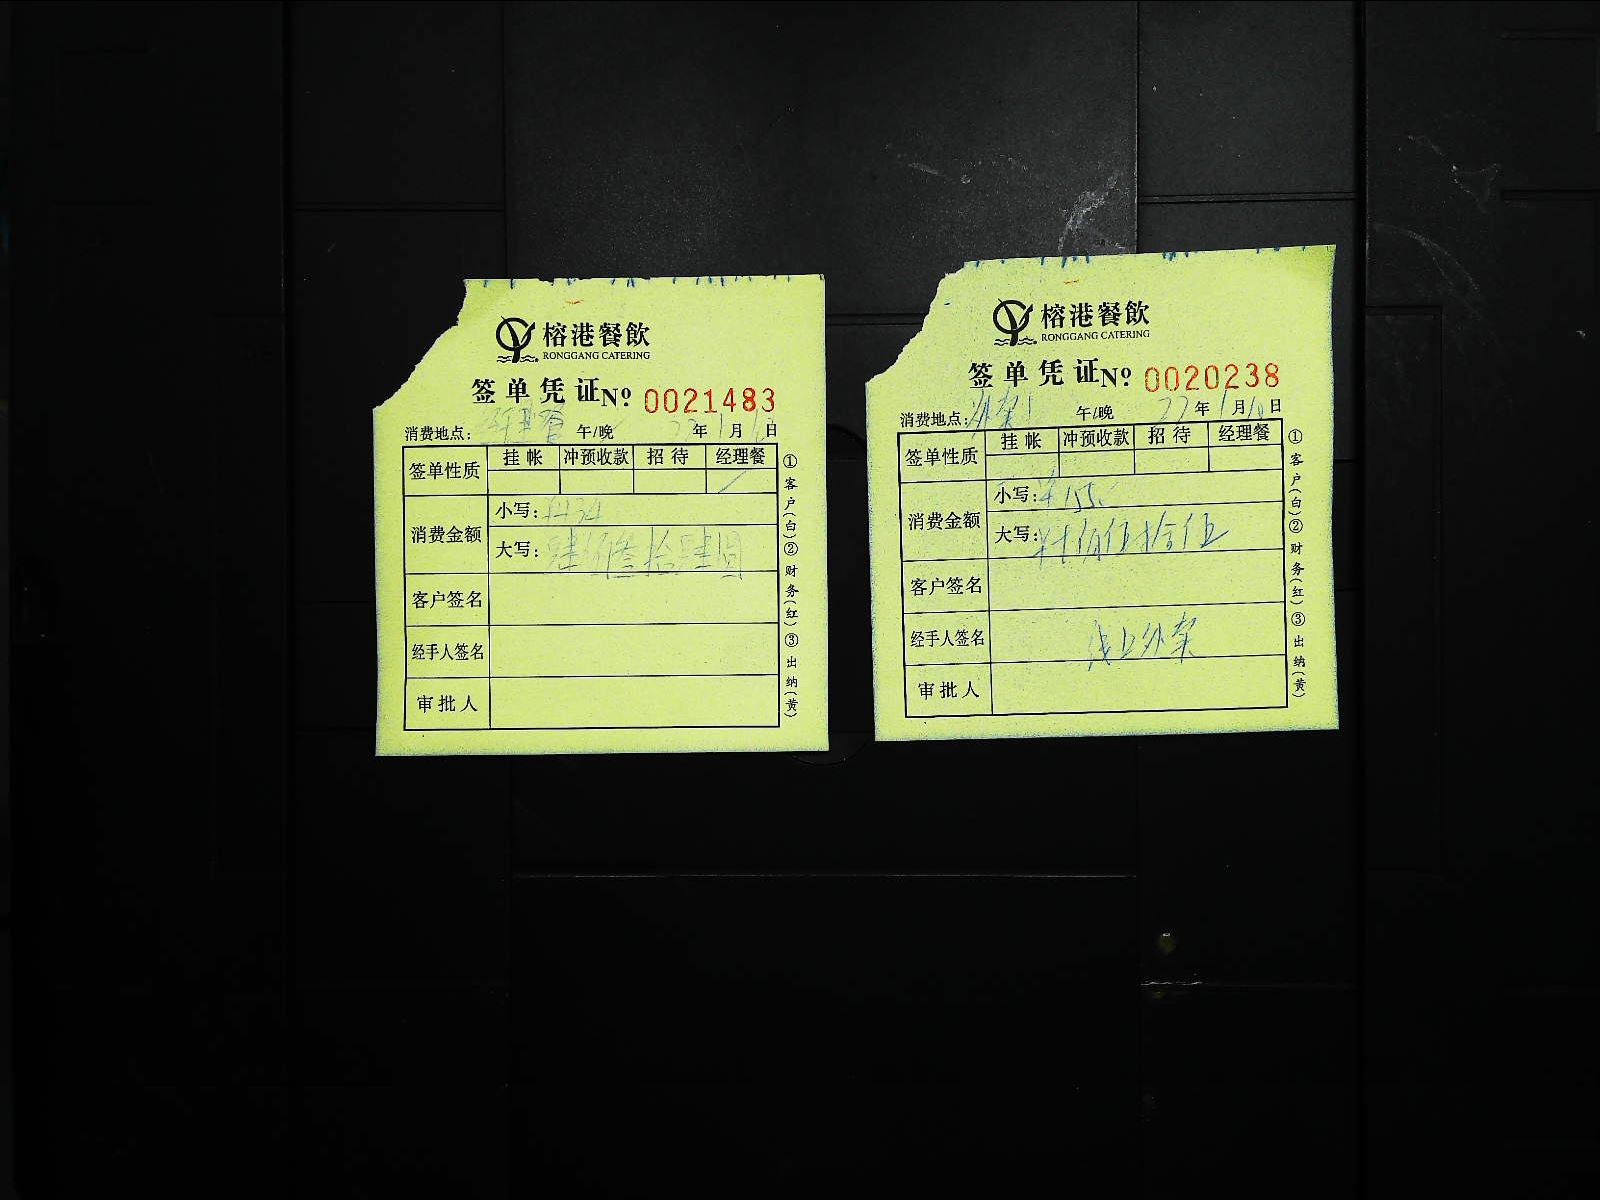 榕港餐飲
RONGGANG CATERING
签单凭证 Nº 0021483
消费地点: 午/晚 22年1月 日
签单性质 挂帐 冲预收款 招待 经理餐
消费金额 小写: 434
大写: 肆佰叁拾肆圆
客户签名
经手人签名
审批人
①客户(白)②财务(红)③出纳(黄)
榕港餐飲
RONGGANG CATERING
签单凭证 Nº 0020238
消费地点: 外卖 午/晚 22年1月10日
签单性质 挂帐 冲预收款 招待 经理餐
消费金额 小写: ¥155.
大写: 佰伍拾伍
客户签名
经手人签名 线上外卖
审批人
①客户(白)②财务(红)③出纳(黄)